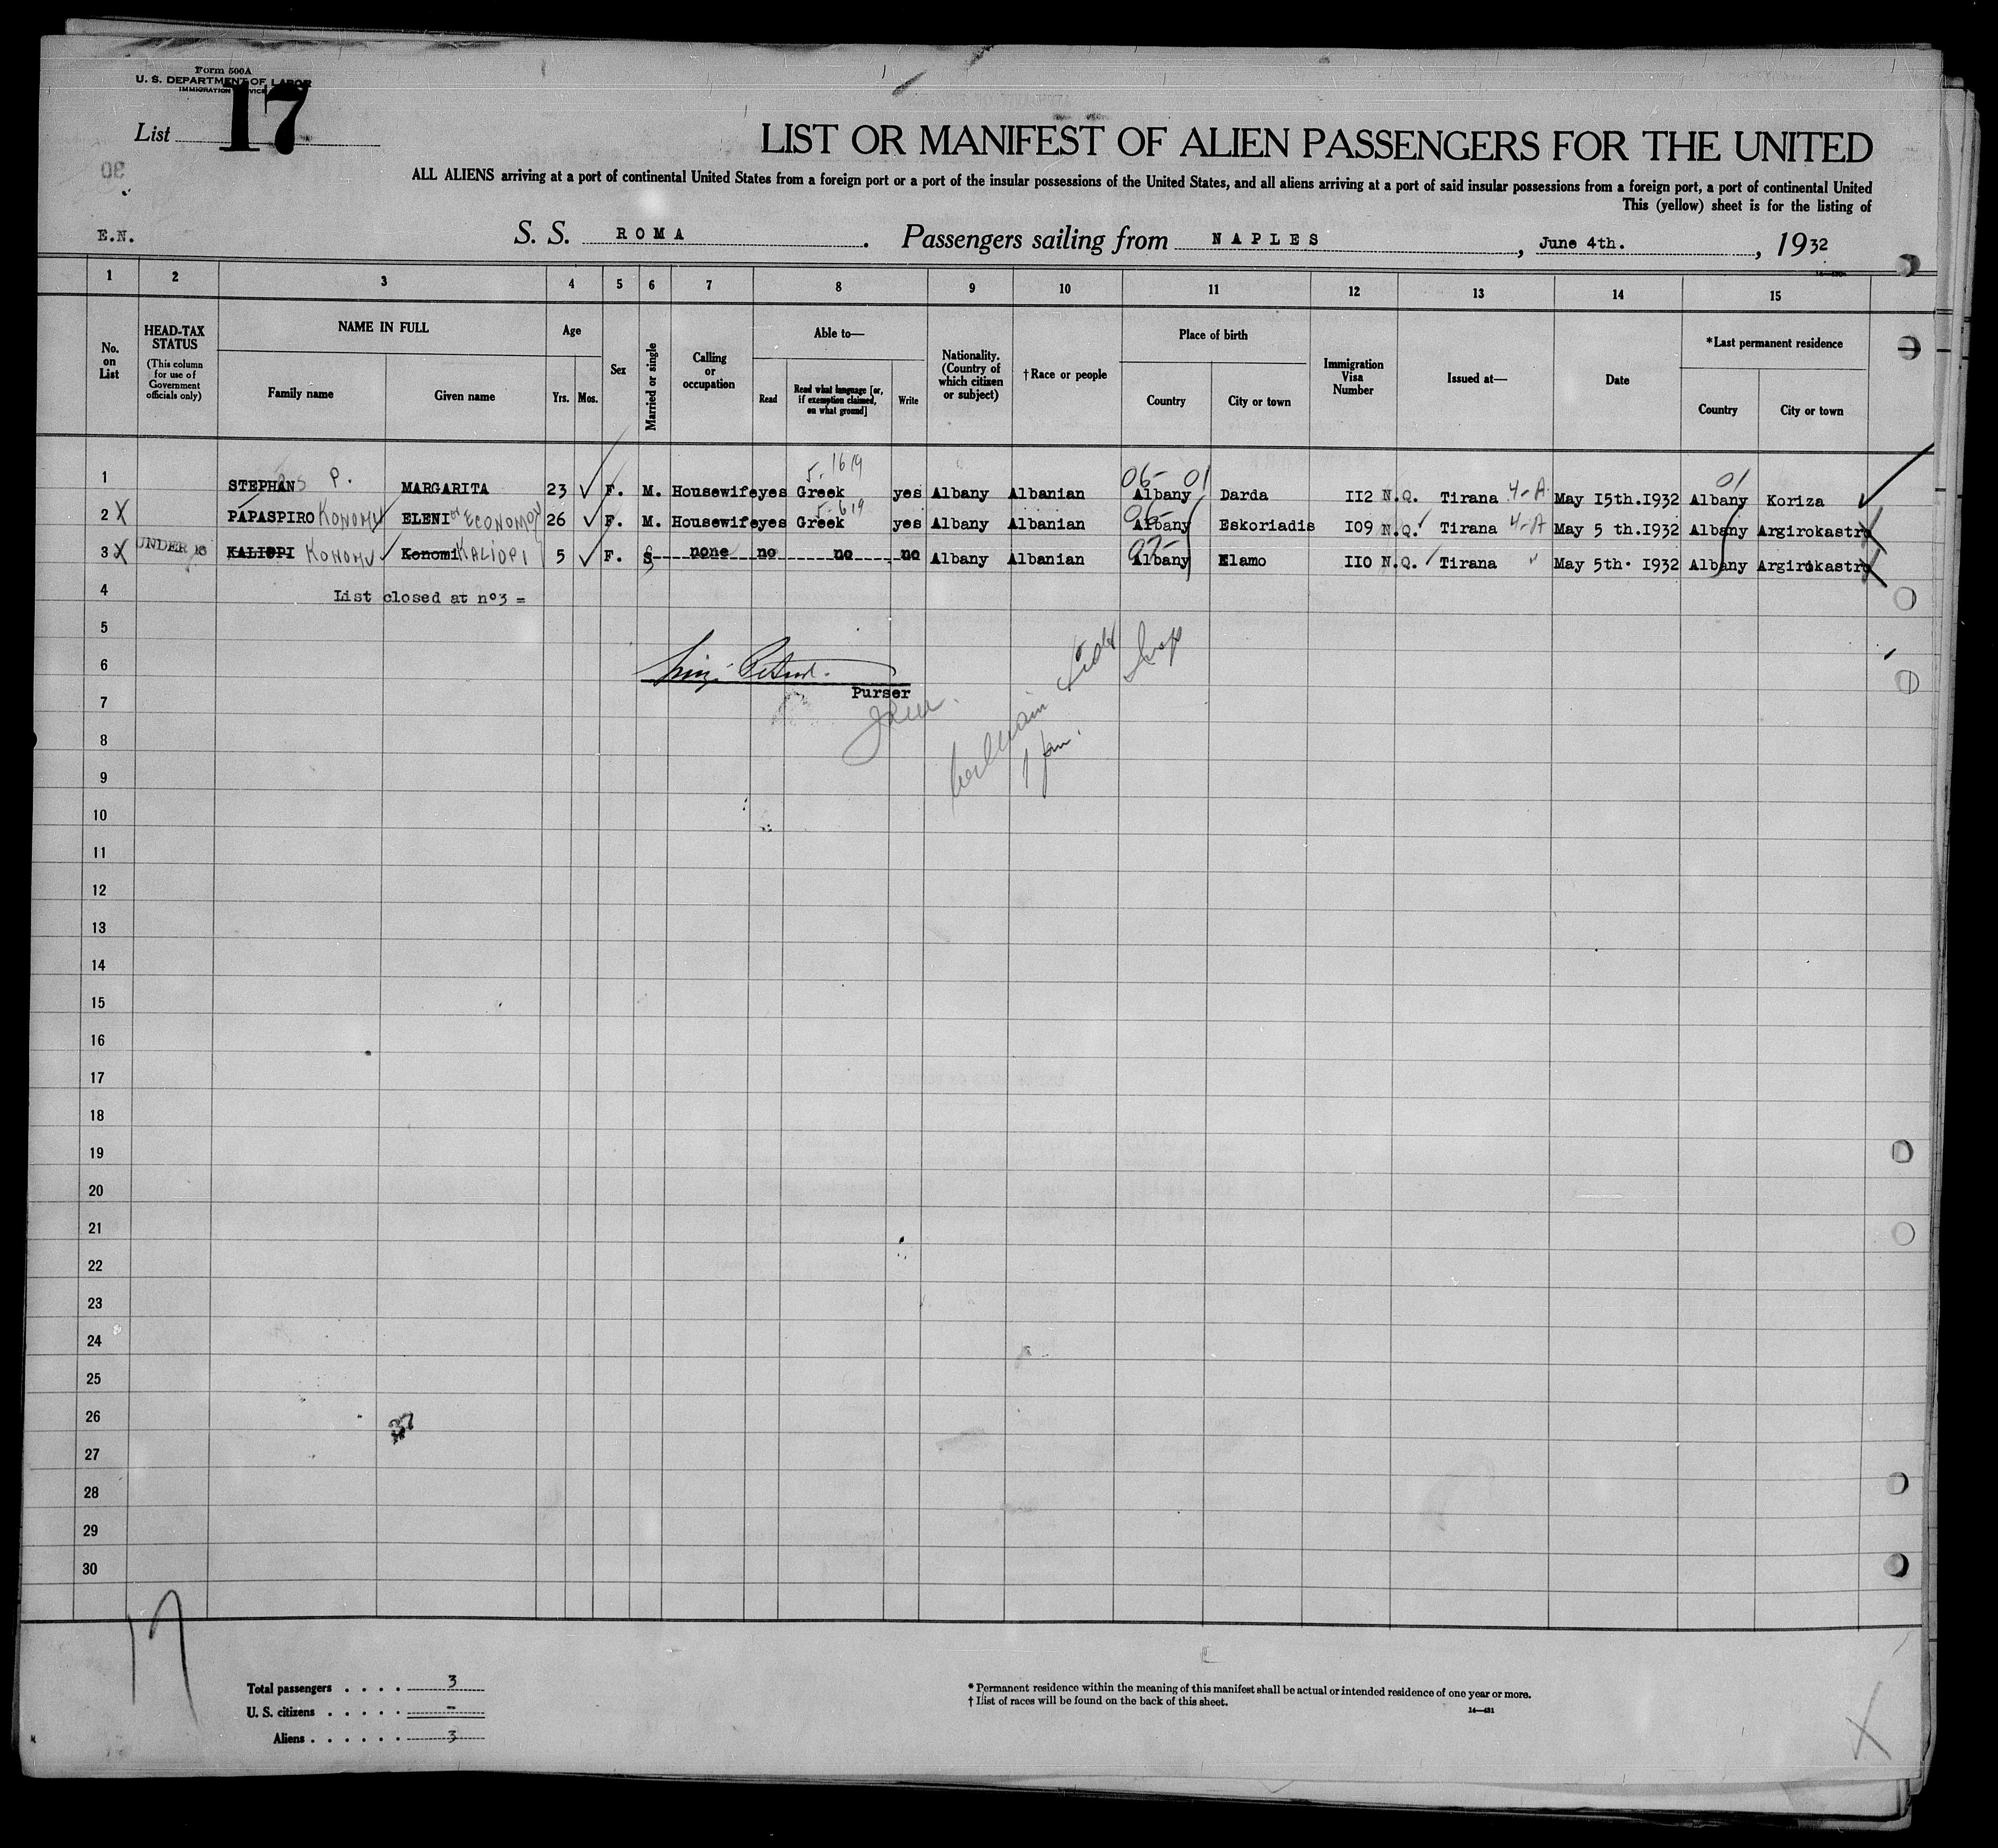 Form 500A
U. S. DEPARTMENT OF LABOR
IMMIGRATION SERVICE
List 17
LIST OR MANIFEST OF ALIEN PASSENGERS FOR THE UNITED
ALL ALIENS arriving at a port of continental United States from a foreign port or a port of the insular possessions of the United States, and all aliens arriving at a port of said insular possessions from a foreign port, a port of continental United
This (yellow) sheet is for the listing of
E.N.
S. S. ROMA. Passengers sailing from NAPLES, June 4th., 1932
1 2 3 4 5 6 7 8 9 10 11 12 13 14 15
No. on List
HEAD-TAX STATUS
(This column for use of Government officials only)
NAME IN FULL
Family name
Given name
Age
Yrs.
Mos.
Sex
Married or single
Calling or occupation
Able to—
Read
Read what language [or, if exemption claimed, on what ground]
Write
Nationality. (Country of which citizen or subject)
†Race or people
Place of birth
Country
City or town
Immigration Visa Number
Issued at—
Date
*Last permanent residence
Country
City or town
5-1619
06-01
01
1 STEPHANS P. MARGARITA 23 F. M. Housewife yes Greek yes Albany Albanian Albany Darda II2 N.Q. Tirana 4-A May I5th.I932 Albany Koriza
5-619
06-
2 X PAPASPIRO KONOMU ELENI or ECONOMOU 26 F. M. Housewife yes Greek yes Albany Albanian Albany Eskoriadis I09 N.Q. Tirana 4-A May 5 th.I932 Albany Argirokastro
3 X UNDER 16 KALIOPI KONOMU Konomi KALIOPI 5 F. S none no no no Albany Albanian Albany Elamo II0 N.Q. Tirana " May 5th. I932 Albany Argirokastro
4 List closed at nº3 =
5
6
Purser
7
8
9
10
11
12
13
14
15
16
17
18
19
20
21
22
23
24
25
26
37
27
28
29
30
17
Total passengers . . . . 3
U. S. citizens . . . . . -
Aliens . . . . . . 3
* Permanent residence within the meaning of this manifest shall be actual or intended residence of one year or more.
† List of races will be found on the back of this sheet.
14—431